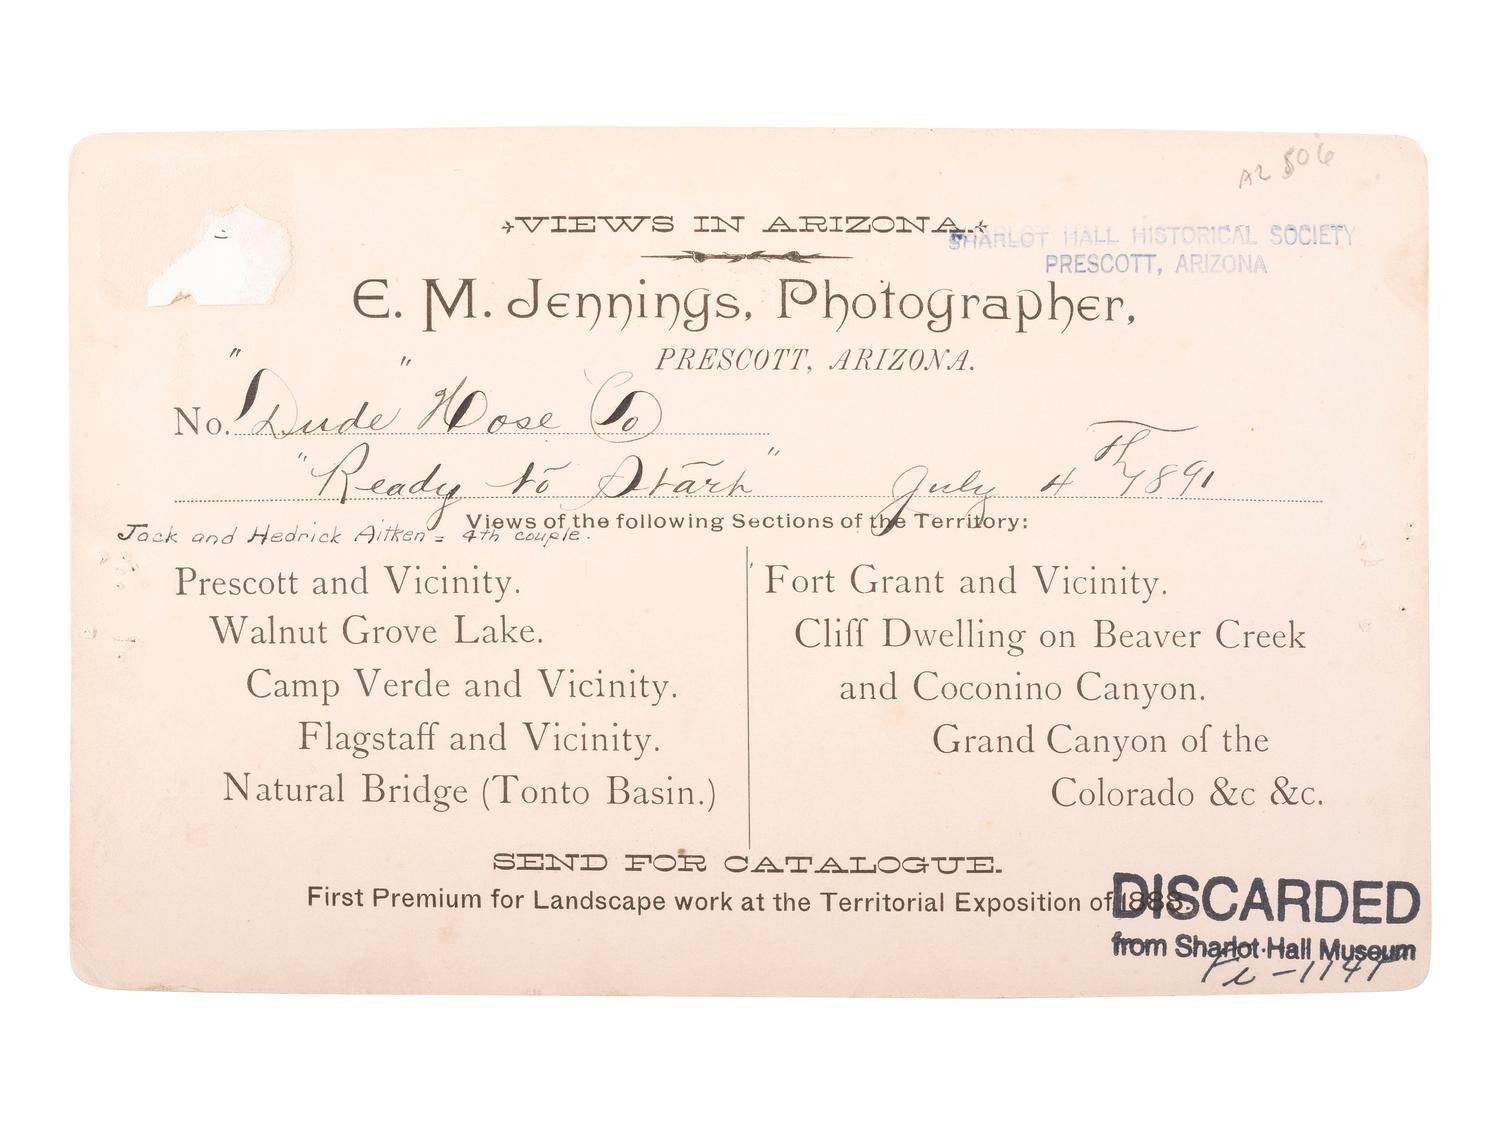 A2 506
VIEWS IN ARIZONA.
SHARLOT HALL HISTORICAL SOCIETY
PRESCOTT, ARIZONA
E. M. Jennings, Photographer,
PRESCOTT, ARIZONA.
No. "Dude" Hose Co
"Ready to Start" July 4th 1891
Views of the following Sections of the Territory:
Jack and Hedrick Aitken = 4th couple.
Prescott and Vicinity.
Walnut Grove Lake.
Camp Verde and Vicinity.
Flagstaff and Vicinity.
Natural Bridge (Tonto Basin.)
Fort Grant and Vicinity.
Cliff Dwelling on Beaver Creek
and Coconino Canyon.
Grand Canyon of the
Colorado &c &c.
SEND FOR CATALOGUE.
First Premium for Landscape work at the Territorial Exposition of 1888.
DISCARDED
from Sharlot Hall Museum